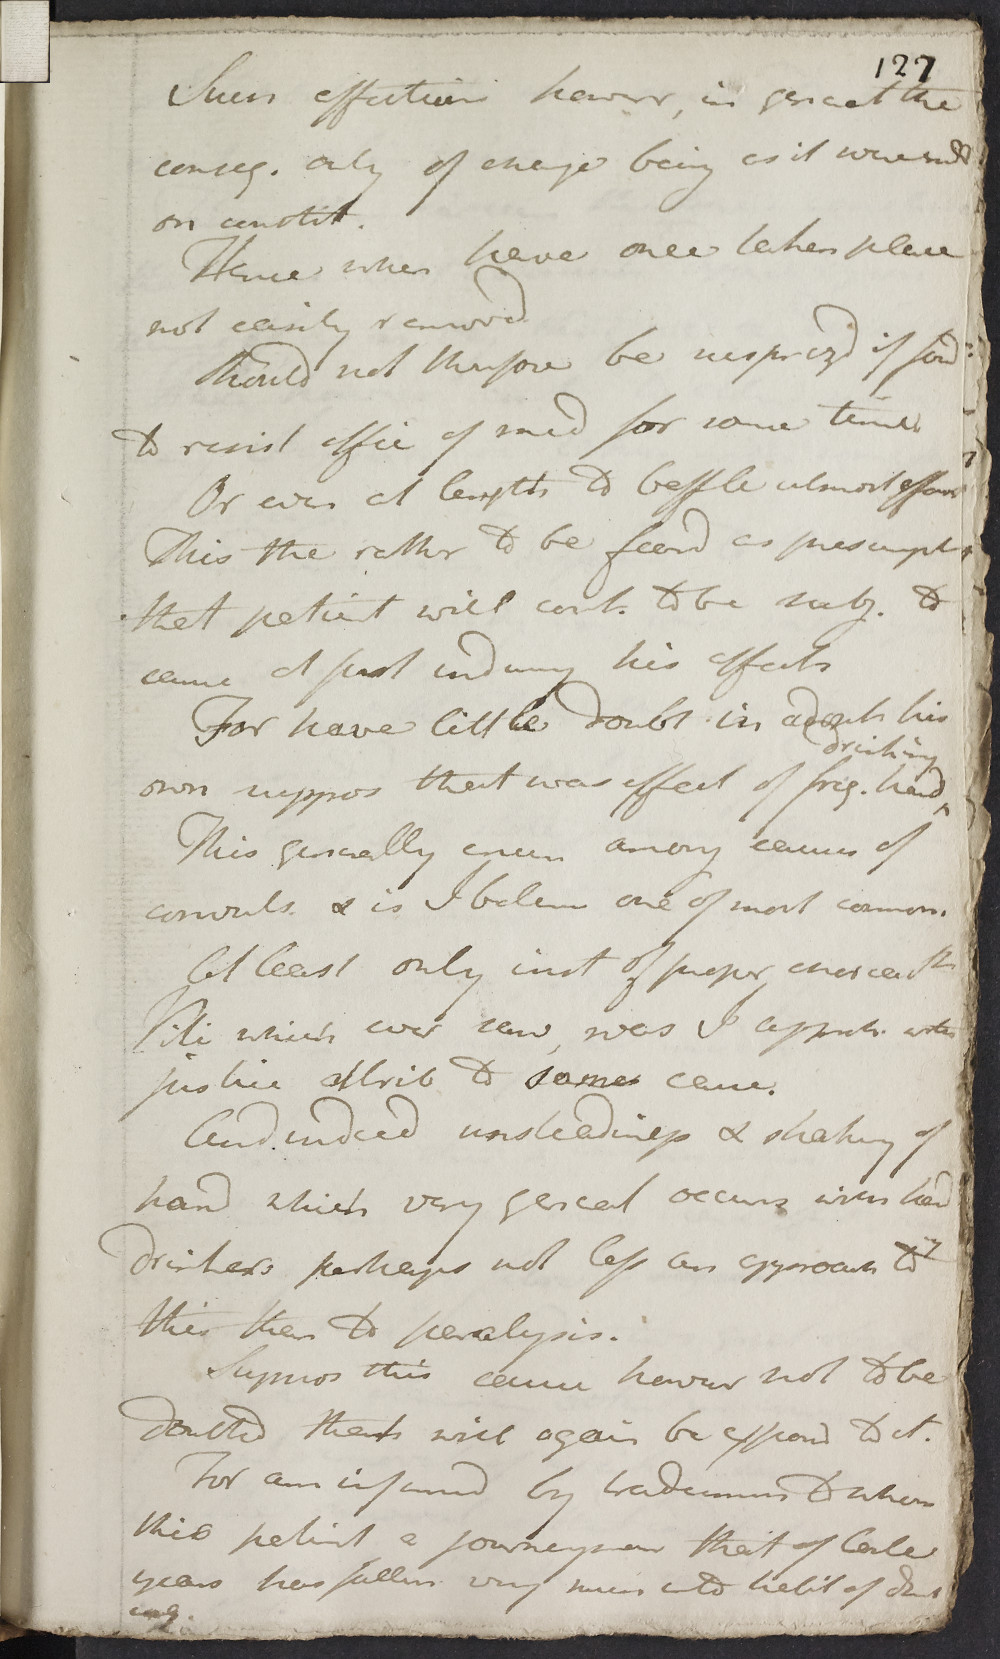 127
Such affections however, in general the
conseq. only of change being as it were
on constit.
Hence when have once taken place
not easily removd
Should not therfore be surprizd if found
to resist effic of med for some time
Or even at length to baffle utmost effors
This the rather to be feard as presumpt
that patient will cont. to be subj. to
cause at first inducing his affects
For have little doubt in adopt his
own suppos that was effect of freq. hard
drinking
This generally enum among causes of
convuls. & is I beleive one of most common.
At least only inst of proper chorea Sti
Viti which ever saw, was I appreh. with
justice attrib to same cause.
And indeed unsteadiness & shaking of
hand which very general occurs with hard
drinkers perhaps not less an approach to
this than to paralysis.
Suppos this cause however not to be
doubted that will again be exposd to it.
For am informd by tradesman to whom
this patient a journeyman that of late
years has fallen very much into habit of drink
ing.